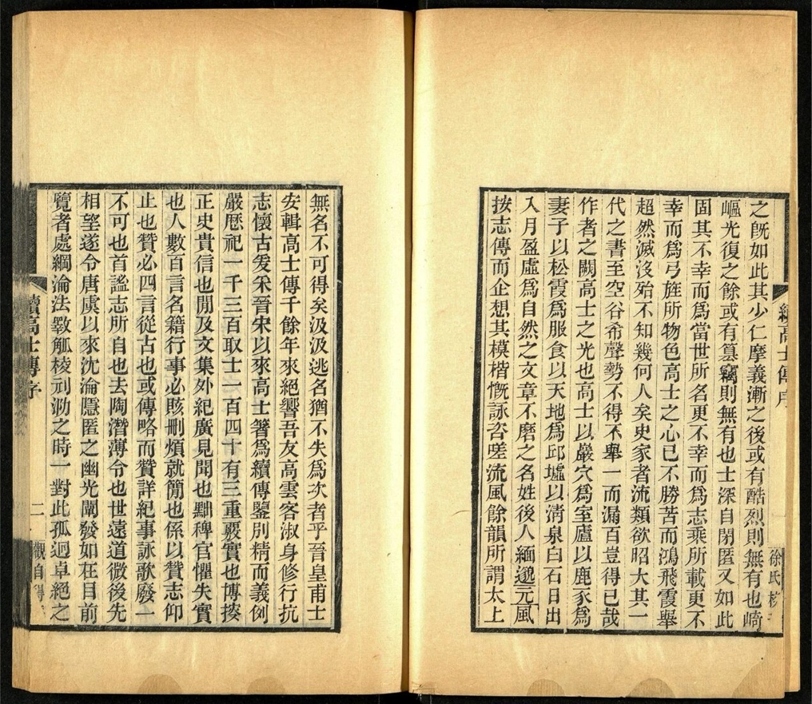 之旣如此其少仁摩義漸之後或有酷烈則無有也崎
嶇光復之餘或有篡竊則無有也士深自閉匿又如此
固其不幸而爲當世所名更不幸而爲志乘所載更不
幸而爲弓旌所物色高士之心已不勝苦而鴻飛霞舉
超然滅沒殆不知幾何人矣史家者流類欲昭大其一
代之書至空谷希聲勢不得不舉一而漏百豈得已哉
作者之闕高士之光也高士以巖穴爲室廬以鹿豕爲
妻子以松霞爲服食以天地爲邱墟以淸泉白石日出
入月盈虛爲自然之文章不磨之名姓後人緬邈元風
按志傳而企想其模楷慨詠咨嗟流風餘韻所謂太上
續高士傳序
徐氏校
無名不可得矣汲汲逃名猶不失爲次者乎晉皇甫士
安輯高士傳千餘年來絕響吾友高雲客淑身修行抗
志懷古爰采晉宋以來高士著爲續傳鑒別精而義例
嚴歷祀一千三百取士一百四十有三重覈實也傳按
正史貴信也閒及文集外紀廣見聞也黜稗官懼失實
也人數百言名籍行事必賅刪煩就簡也係以贊志仰
止也贊必四言從古也或傳略而贊詳紀事詠歌廢一
不可也首謐志所自也去陶潛薄令也世遠道微後先
相望遂令唐虞以來沈淪隱匿之幽光闡發如在目前
覽者處綱淪法斁觚稜刓泐之時一對此孤迥卓絕之
續高士傳序
二
觀自得